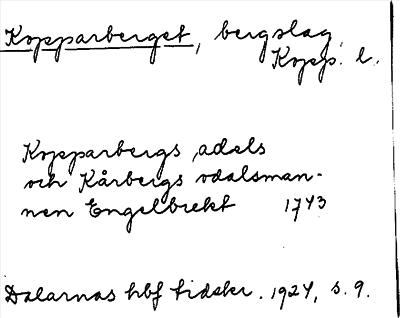 Kopparberget, bergslag,
Kopp. l.
Kopparbergs adels
och Kårbergs odalsman-
nen Engelbrekt 1743
Dalarnas hbf tidskr. 1924, s. 9.